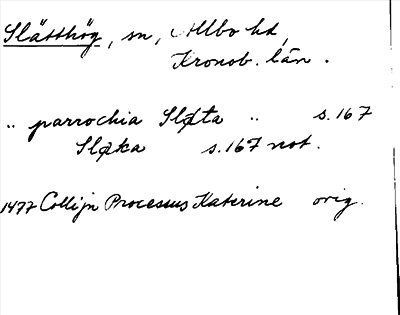 Slätthög, sn, Allbo hd,
Kronob. län.
" parrochia Sløta " s. 167
Sløka s. 167 not.
1477 Collijn Processus Katerine orig.